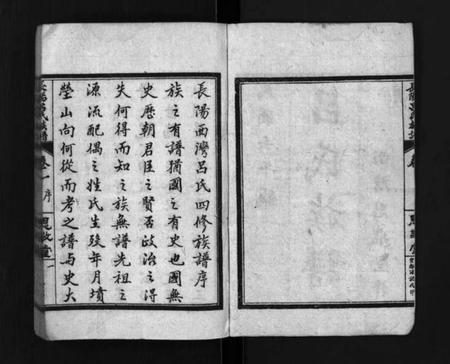 長陽西灣呂氏四修族譜序
族之有譜猶國之有史也國無
史歷朝君臣之賢否政治之得
失何得而知之族無譜先祖之
源流配偶之姓氏生歿年月墳
塋山向何從而考之譜與史大
卷一 序